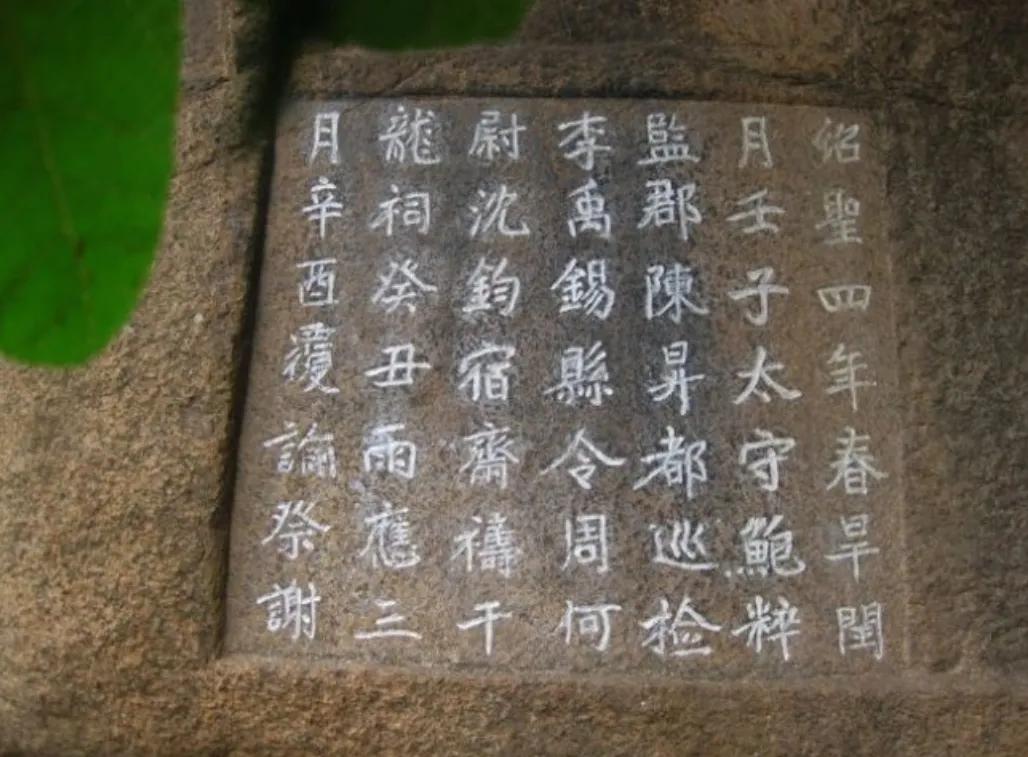 紹聖四年春旱閏
月壬子太守鮑粹
監郡陳昇都巡捡
李禹錫縣令周何
尉沈鈞宿齋禱干
龍祠癸丑雨應三
月辛酉躬諭祭謝